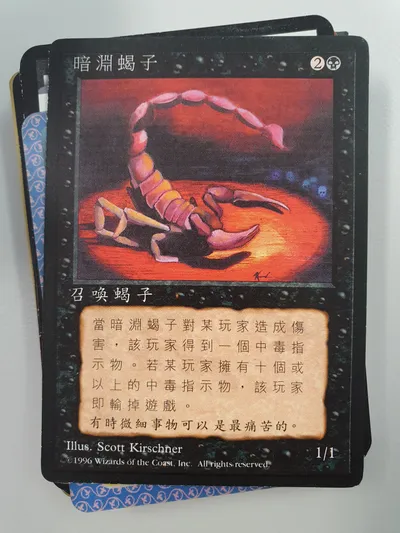 暗淵蝎子 2
召喚蝎子
當暗淵蝎子對某玩家造成傷
害，該玩家得到一個中毒指
示物。若某玩家擁有十個或
以上的中毒指示物，該玩家
即輸掉遊戲。
有時微細事物可以是最痛苦的。
Illus. Scott Kirschner
1/1
©1996 Wizards of the Coast, Inc. All rights reserved.